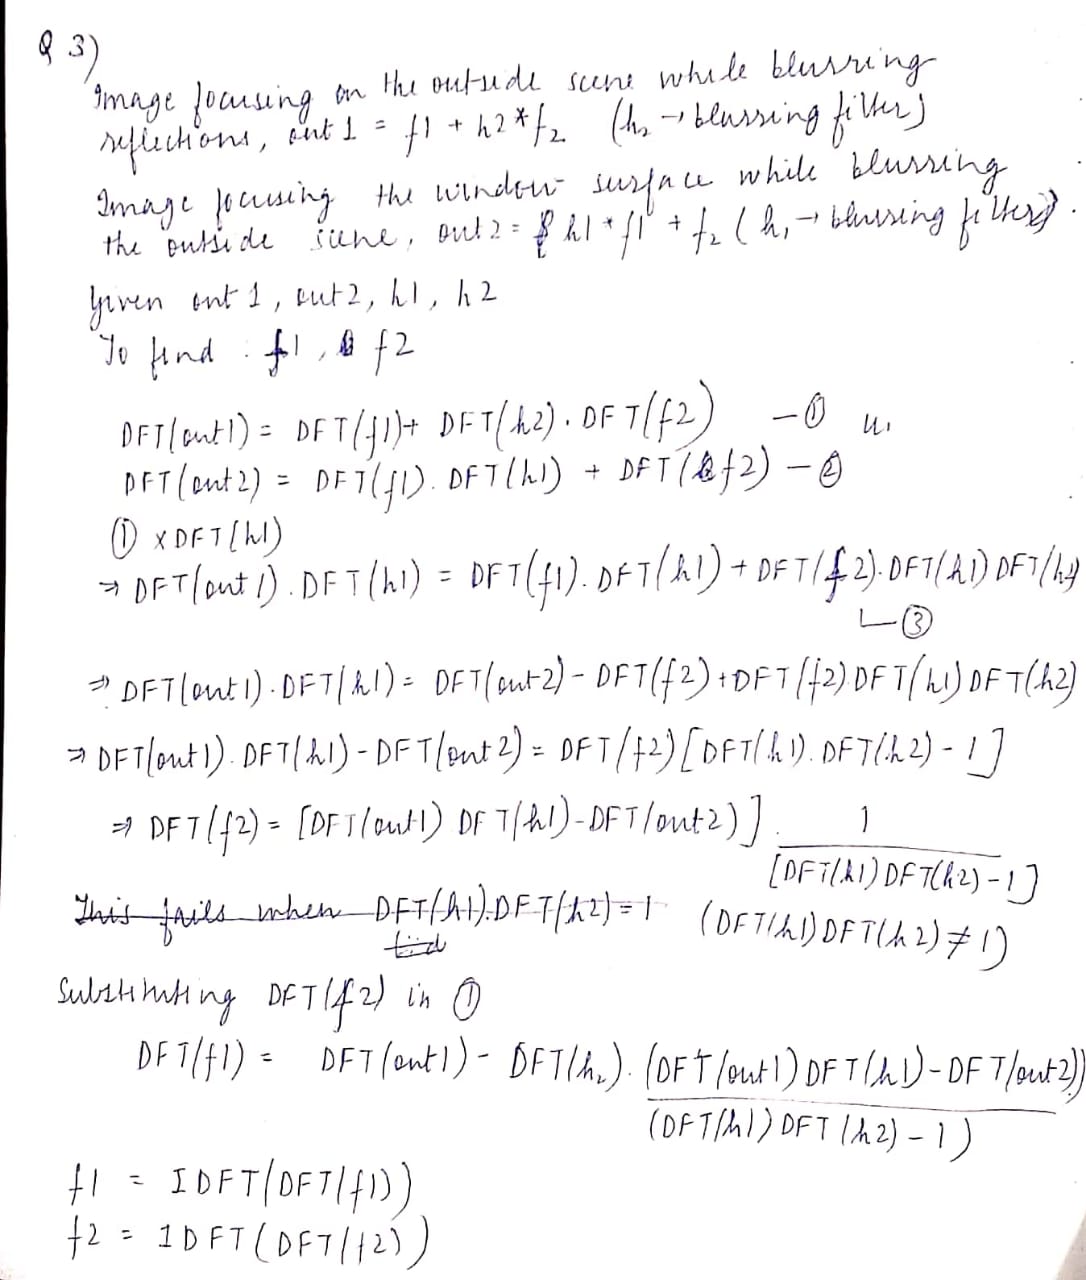 Q 3)
Image focusing on the outside scene while blurring
reflections, out 1 = f1 + h2 * f₂ (h₂ → blurring filter)
Image focusing the window surface while blurring
the outside scene, out 2 = h1 * f1 + f₂ (h₁ → blurring filter).
Given out 1, out 2, h1, h2
To find : f1, f2
DFT(out1) = DFT(f1) + DFT(h2). DFT(f2) — ①
DFT(out2) = DFT(f1). DFT(h1) + DFT(f2) — ②
① x DFT(h1)
⇒ DFT(out 1). DFT(h1) = DFT(f1). DFT(h1) + DFT(f2). DFT(h1) DFT(h2)
③
⇒ DFT(out1). DFT(h1) = DFT(out2) - DFT(f2) + DFT(f2) DFT(h1) DFT(h2)
⇒ DFT(out1). DFT(h1) - DFT(out 2) = DFT(f2) [DFT(h1). DFT(h2) - 1]
⇒ DFT(f2) = [DFT(out1) DFT(h1) - DFT(out2)] . 1
[DFT(h1) DFT(h2) - 1]
This fails when DFT(h1).DFT(h2) = 1 (DFT(h1) DFT(h2) ≠ 1)
Substituting DFT(f2) in ①
DFT(f1) = DFT(out1) - DFT(h₂). (DFT(out1) DFT(h1) - DFT(out2))
(DFT(h1) DFT(h2) - 1)
f1 = IDFT(DFT(f1))
f2 = IDFT(DFT(f2))